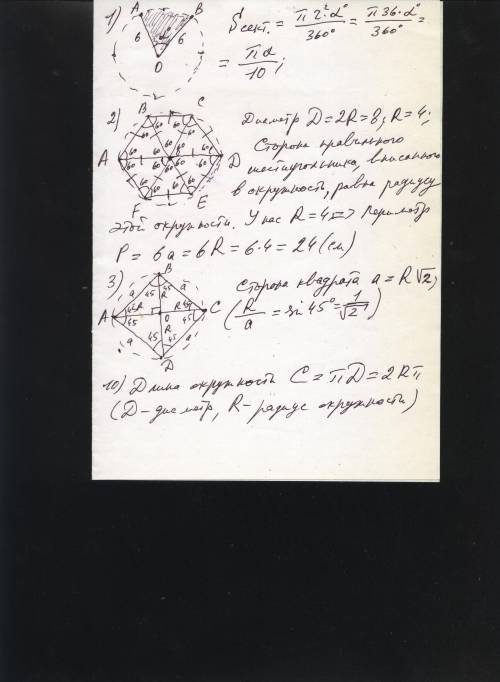 1) A B 6 6 α O Sсект. = π2²·α°/360° = π36·α°/360° =
= πα/10;
2) A B C D E F 60 60 60 60 60 60 60 60 60 60 60 60 60 60 60 60 60 60
Диаметр D=2R=8; R=4;
Сторона правильного
шестиугольника, вписанного
в окружность, равна радиусу
этой окружности. У нас R=4 => Периметр
P = 6a = 6R = 6·4 = 24 (см)
3) A B C D O a a a a R R R R 45 45 45 45 45 45 45 45
Сторона квадрата a = R√2;
(R/a = sin 45° = 1/√2)
10) Длина окружности C = πD = 2Rπ
(D - диаметр, R - радиус окружности)